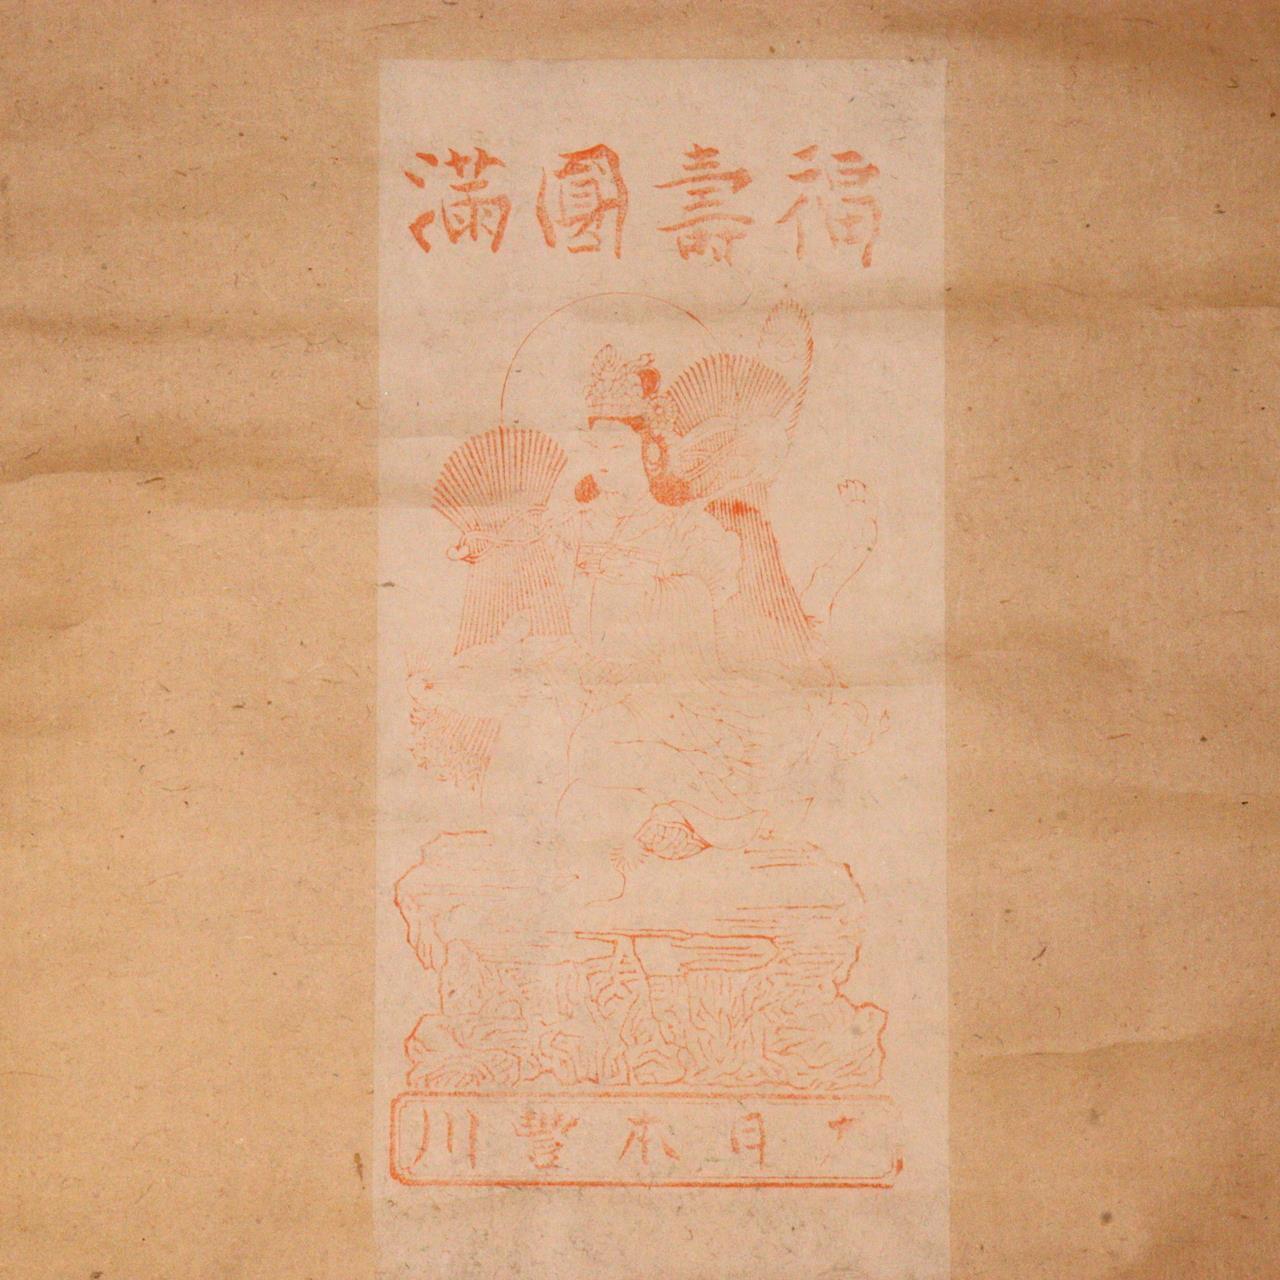 福壽圓滿
大日本豐川